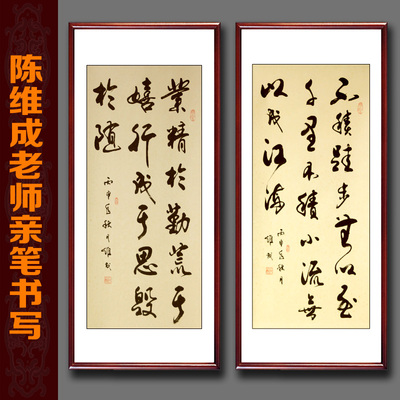 陈维成老师亲笔书写
業精於勤荒于
嬉行成于思毁
於随
丙申年秋月維成
不積跬步无以至
千里不積小流無
以成江海
丙申年秋月
維成